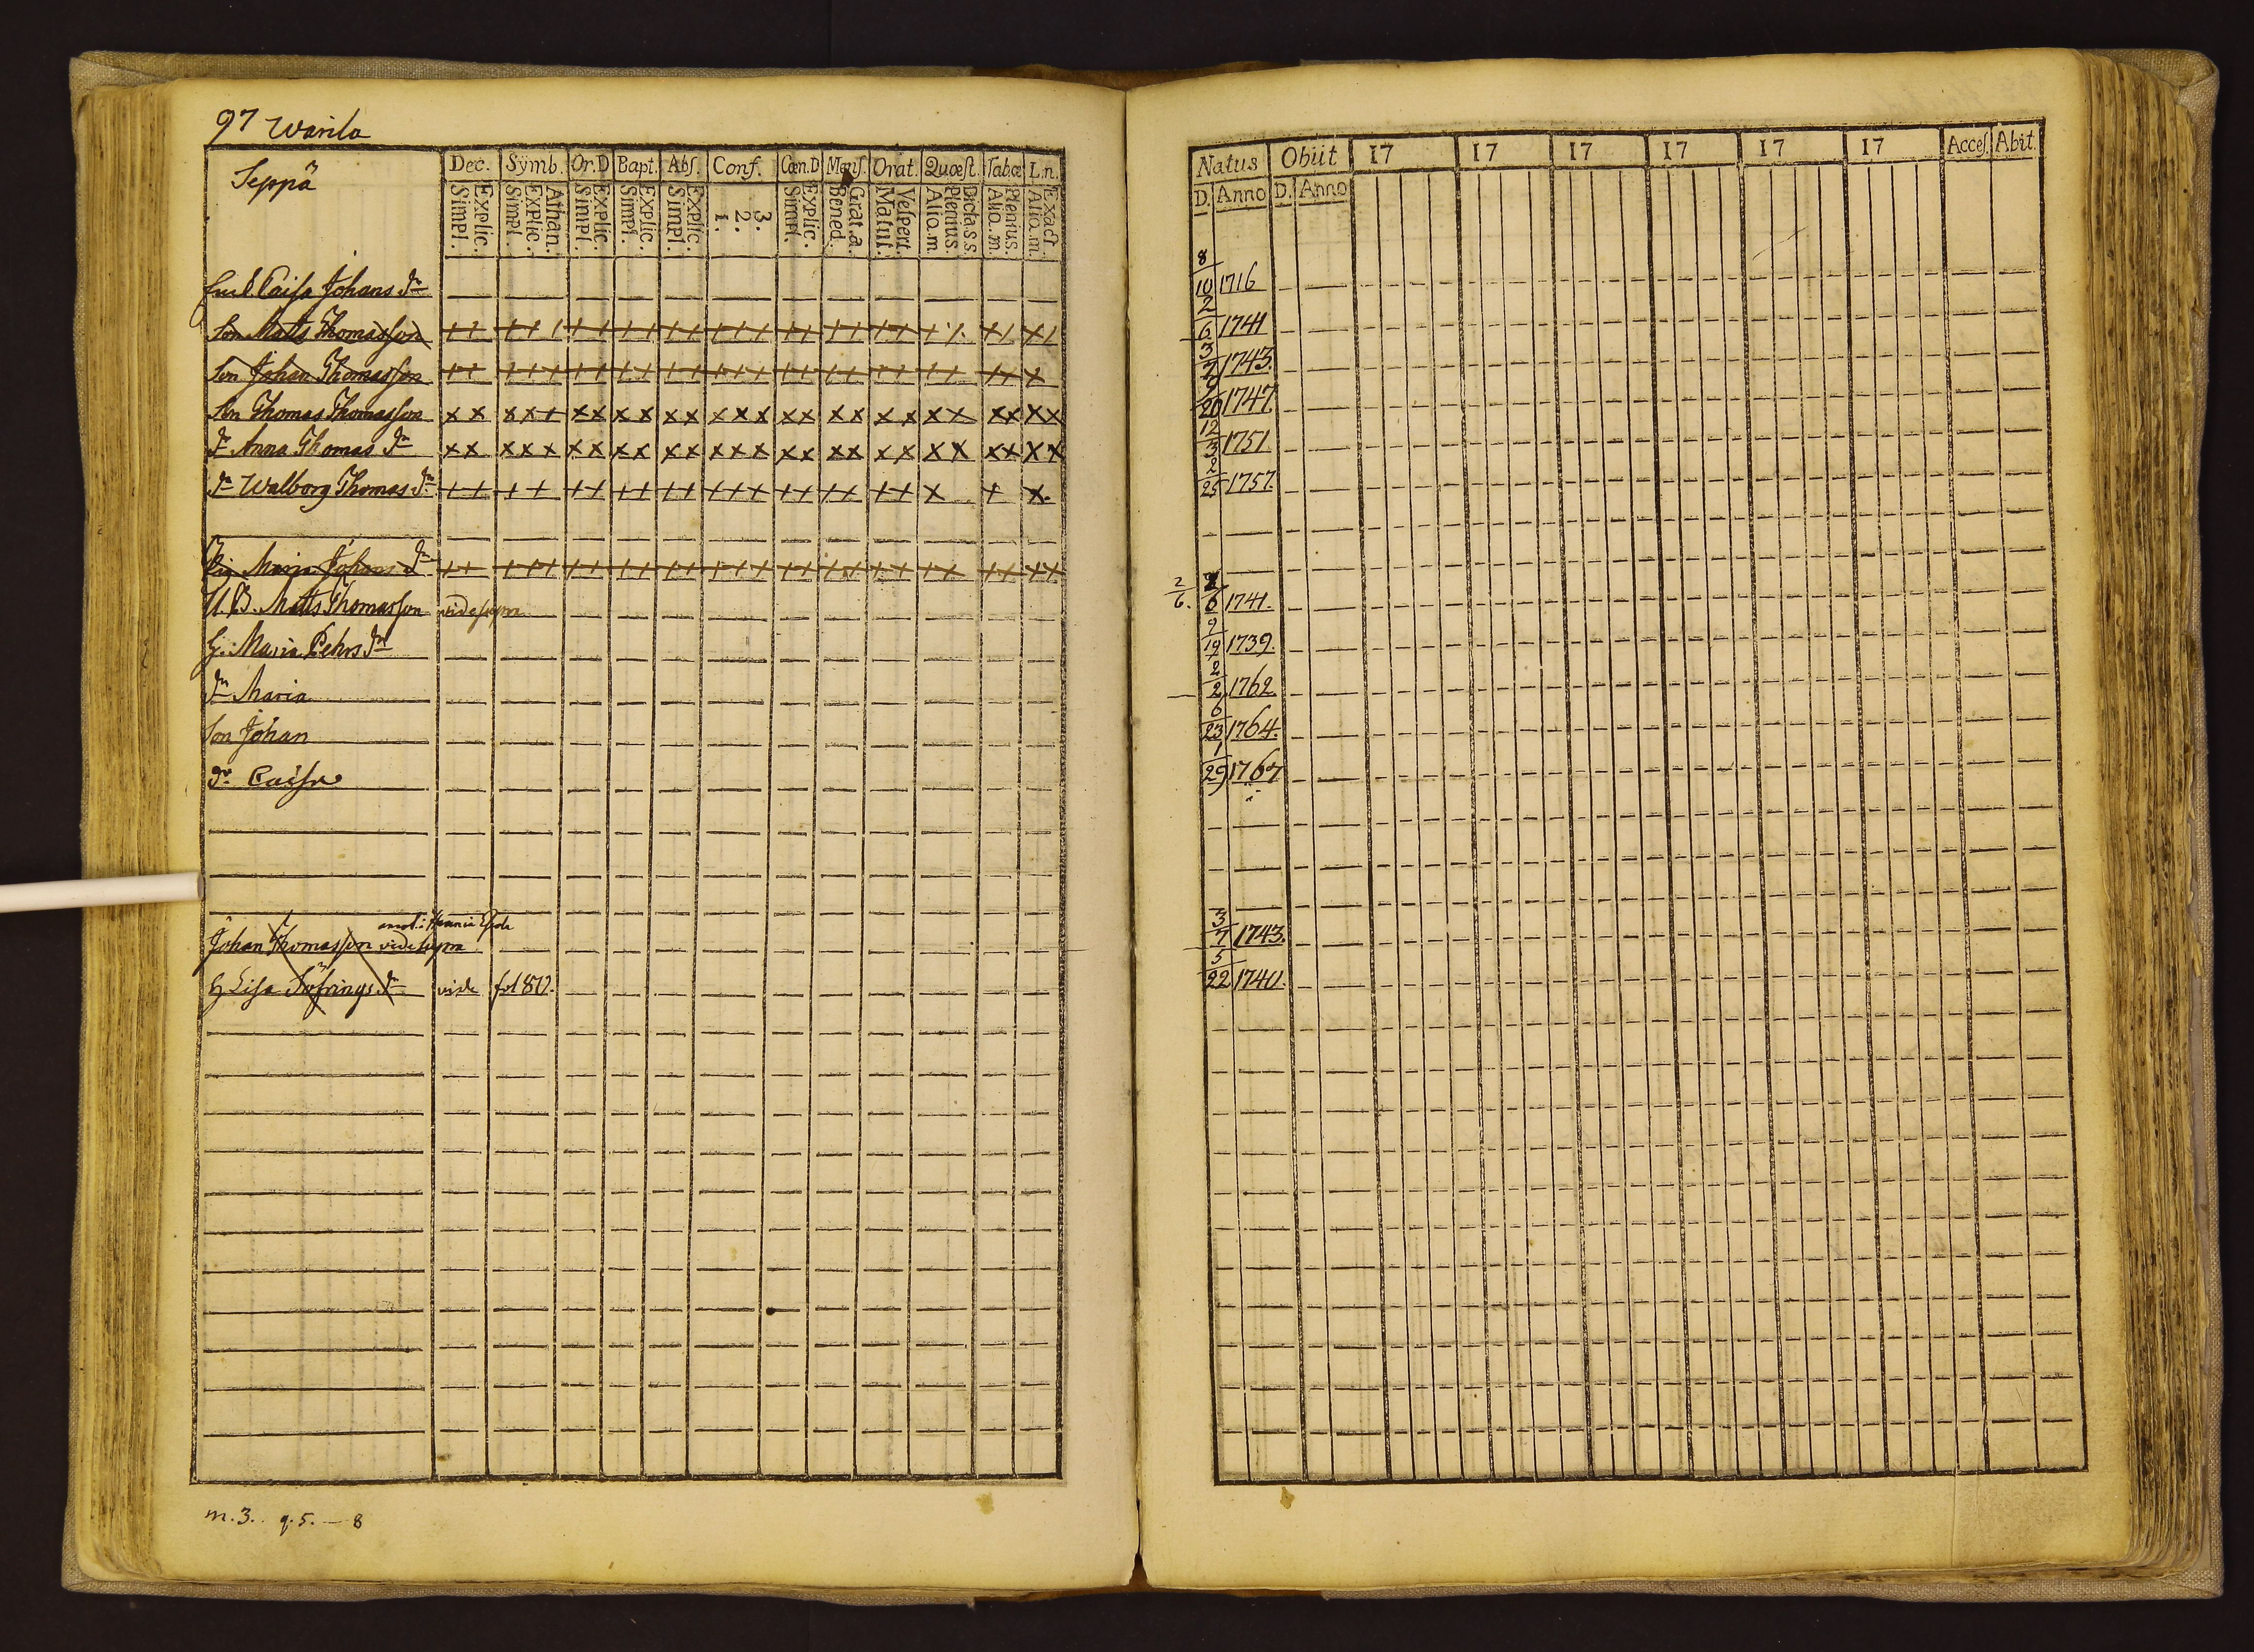 97 Warila
Seppä
Dec. Symb. Or.D Bapt. Abſ. Conf. Cœn.D Menſ. Orat. Quæſt. Tab.œ L.n.
Simpl. Explic. Simpl. Explic. Athan. Simpl. Explic. Simpl. Explic. Simpl. Explic. 1. 2. 3. Simpl. Explic. Bened. Grat.a. Matut. Veſpert. Aliq.m Plenius. Dicta.s s Aliq.m. Plenius. Aliq.m. Exact
Natus Obiit 17 17 17 17 17 17 Acceſ. Abit.
D. Anno D. Anno
Caisa Johans dr 8/10 1716
Son Matts Thomasson 2/6 1741
Son Johan Thomasson 3/7 1743.
Son Thomas Thomasson 20 1747.
dr Anna Thomas dr 12/3 1751
dr Walborg Thomas dr 2/25 1757
Maria Johans dr
U.B. Matts Thomasson vide supra 2/6. 6 1741.
H. Maria Pehrs dr 9/19 1739.
dr Maria 2/2 1762
Son Johan 6/23 1764.
dr Caisa 1/29 1767
Johan Thomasson vide supra 3/7 1743.
H Lisa dr vide fol 80. 5/22 1740.
m.3. q.5. — 8